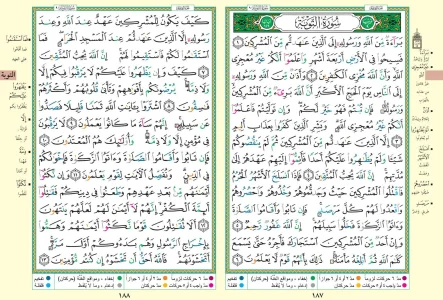 سُورَةُ التَّوْبَةِ
بَرَاءَةٌ مِّنَ اللَّهِ وَرَسُولِهِ إِلَى الَّذِينَ عَاهَدتُّم مِّنَ الْمُشْرِكِينَ ١
فَسِيحُوا فِي الْأَرْضِ أَرْبَعَةَ أَشْهُرٍ وَاعْلَمُوا أَنَّكُمْ غَيْرُ مُعْجِزِي
اللَّهِ وَأَنَّ اللَّهَ مُخْزِي الْكَافِرِينَ ٢ وَأَذَانٌ مِّنَ اللَّهِ وَرَسُولِهِ
إِلَى النَّاسِ يَوْمَ الْحَجِّ الْأَكْبَرِ أَنَّ اللَّهَ بَرِيءٌ مِّنَ الْمُشْرِكِينَ
وَرَسُولُهُ فَإِن تُبْتُمْ فَهُوَ خَيْرٌ لَّكُمْ وَإِن تَوَلَّيْتُمْ فَاعْلَمُوا
أَنَّكُمْ غَيْرُ مُعْجِزِي اللَّهِ وَبَشِّرِ الَّذِينَ كَفَرُوا بِعَذَابٍ أَلِيمٍ
٣ إِلَّا الَّذِينَ عَاهَدتُّم مِّنَ الْمُشْرِكِينَ ثُمَّ لَمْ يَنقُصُوكُمْ
شَيْئًا وَلَمْ يُظَاهِرُوا عَلَيْكُمْ أَحَدًا فَأَتِمُّوا إِلَيْهِمْ عَهْدَهُمْ إِلَى
مُدَّتِهِمْ إِنَّ اللَّهَ يُحِبُّ الْمُتَّقِينَ ٤ فَإِذَا انسَلَخَ الْأَشْهُرُ الْحُرُمُ
فَاقْتُلُوا الْمُشْرِكِينَ حَيْثُ وَجَدتُّمُوهُمْ وَخُذُوهُمْ وَاحْصُرُوهُمْ
وَاقْعُدُوا لَهُمْ كُلَّ مَرْصَدٍ فَإِن تَابُوا وَأَقَامُوا الصَّلَاةَ
وَآتَوُا الزَّكَاةَ فَخَلُّوا سَبِيلَهُمْ إِنَّ اللَّهَ غَفُورٌ رَّحِيمٌ ٥
وَإِنْ أَحَدٌ مِّنَ الْمُشْرِكِينَ اسْتَجَارَكَ فَأَجِرْهُ حَتَّى يَسْمَعَ
كَلَامَ اللَّهِ ثُمَّ أَبْلِغْهُ مَأْمَنَهُ ذَلِكَ بِأَنَّهُمْ قَوْمٌ لَّا يَعْلَمُونَ ٦
١٨٧
كَيْفَ يَكُونُ لِلْمُشْرِكِينَ عَهْدٌ عِندَ اللَّهِ وَعِندَ
رَسُولِهِ إِلَّا الَّذِينَ عَاهَدتُّمْ عِندَ الْمَسْجِدِ الْحَرَامِ فَمَا
اسْتَقَامُوا لَكُمْ فَاسْتَقِيمُوا لَهُمْ إِنَّ اللَّهَ يُحِبُّ الْمُتَّقِينَ
٧ كَيْفَ وَإِن يَظْهَرُوا عَلَيْكُمْ لَا يَرْقُبُوا فِيكُمْ إِلًّا
وَلَا ذِمَّةً يُرْضُونَكُم بِأَفْوَاهِهِمْ وَتَأْبَى قُلُوبُهُمْ وَأَكْثَرُهُمْ
فَاسِقُونَ ٨ اشْتَرَوْا بِآيَاتِ اللَّهِ ثَمَنًا قَلِيلًا فَصَدُّوا
عَن سَبِيلِهِ إِنَّهُمْ سَاءَ مَا كَانُوا يَعْمَلُونَ ٩ لَا يَرْقُبُونَ
فِي مُؤْمِنٍ إِلًّا وَلَا ذِمَّةً وَأُولَئِكَ هُمُ الْمُعْتَدُونَ ١٠
فَإِن تَابُوا وَأَقَامُوا الصَّلَاةَ وَآتَوُا الزَّكَاةَ فَإِخْوَانُكُمْ
فِي الدِّينِ وَنُفَصِّلُ الْآيَاتِ لِقَوْمٍ يَعْلَمُونَ ١١ وَإِن نَّكَثُوا
أَيْمَانَهُم مِّن بَعْدِ عَهْدِهِمْ وَطَعَنُوا فِي دِينِكُمْ فَقَاتِلُوا
أَئِمَّةَ الْكُفْرِ إِنَّهُمْ لَا أَيْمَانَ لَهُمْ لَعَلَّهُمْ يَنتَهُونَ
١٢ أَلَا تُقَاتِلُونَ قَوْمًا نَّكَثُوا أَيْمَانَهُمْ وَهَمُّوا
بِإِخْرَاجِ الرَّسُولِ وَهُم بَدَءُوكُمْ أَوَّلَ مَرَّةٍ
أَتَخْشَوْنَهُمْ فَاللَّهُ أَحَقُّ أَن تَخْشَوْهُ إِن كُنتُم مُّؤْمِنِينَ ١٣
التوبة
١٨٨